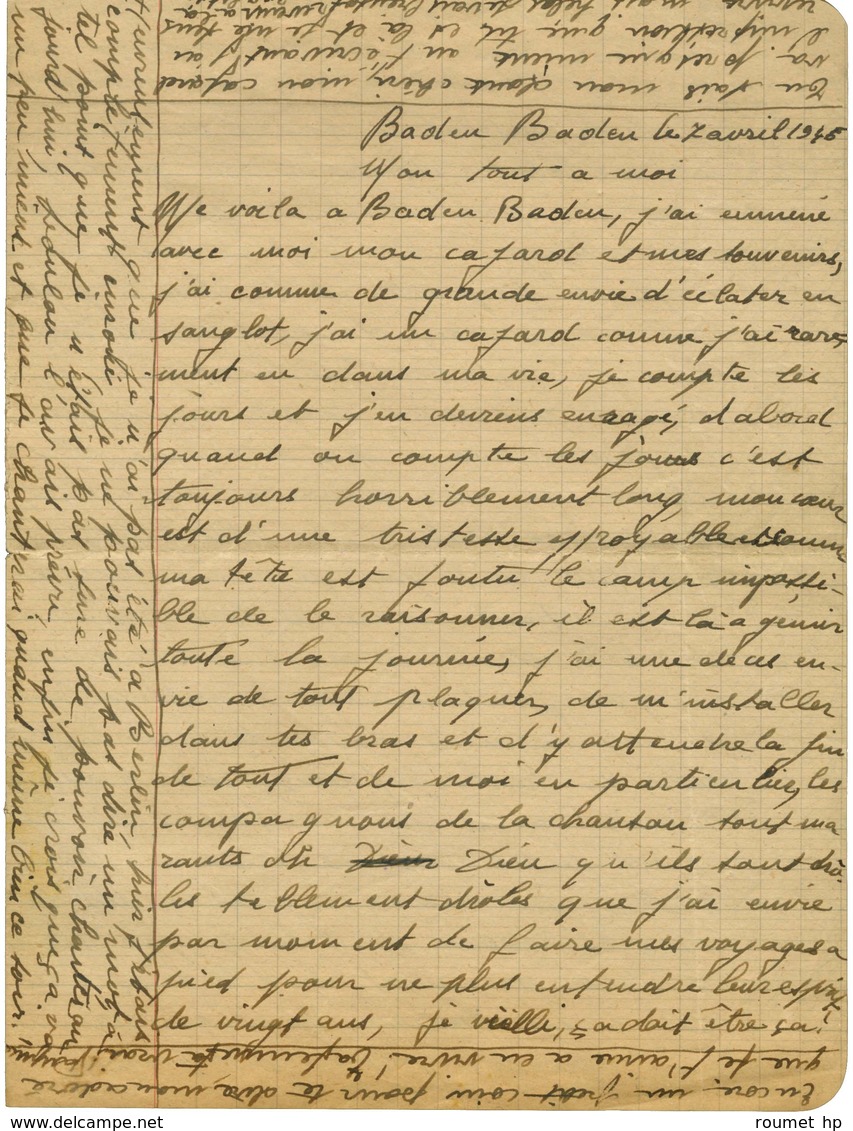 Baden Baden le 7 avril 1945
Mon tout a moi
Me voila a Baden Baden, j'ai emmené
avec moi mon cafard et mes souvenirs,
j'ai comme de grande envie d'éclater en
sanglot, j'ai un cafard comme j'ai rare-
ment eu dans ma vie, je compte les
jours et j'en deviens enragé, d'abord
quand on compte les jours c'est
toujours horriblement long, mon cœur
est d'une tristesse effroyable et comme
ma tête est foutu le camp impossi-
ble de le raisonner, il est là a gémir
toute la journée, j'ai une de ces en-
vie de tout plaquer, de m'installer
dans tes bras et d'y attendre la fin
de tout et de moi en particulier, les
compagnons de la chanson sont ma
rants oh Dieu qu'ils sont drô-
les tellement drôles que j'ai envie
par moment de faire mes voyages a
pied pour ne plus entendre leur esprit
de vingt ans, je vieilli, ça doit être ça!
que je n'ai pas été a Berlin, hier j'étais
complètement je ne pouvais pas dire un mot à
tel point que je n'étais pas sure de pouvoir chanter au
jourd'hui, l'avais prévu, enfin je crois que ça va
un peu mieux et que je chant'rai quand même bien ce soir!
Encore un petit coin pour te dire, mon adoré
que je t'aime a en
Tu sais mon chéri, mon cafard
va mieux en t'écrivant j'ai
l'impression que tu est là et
roumet hp